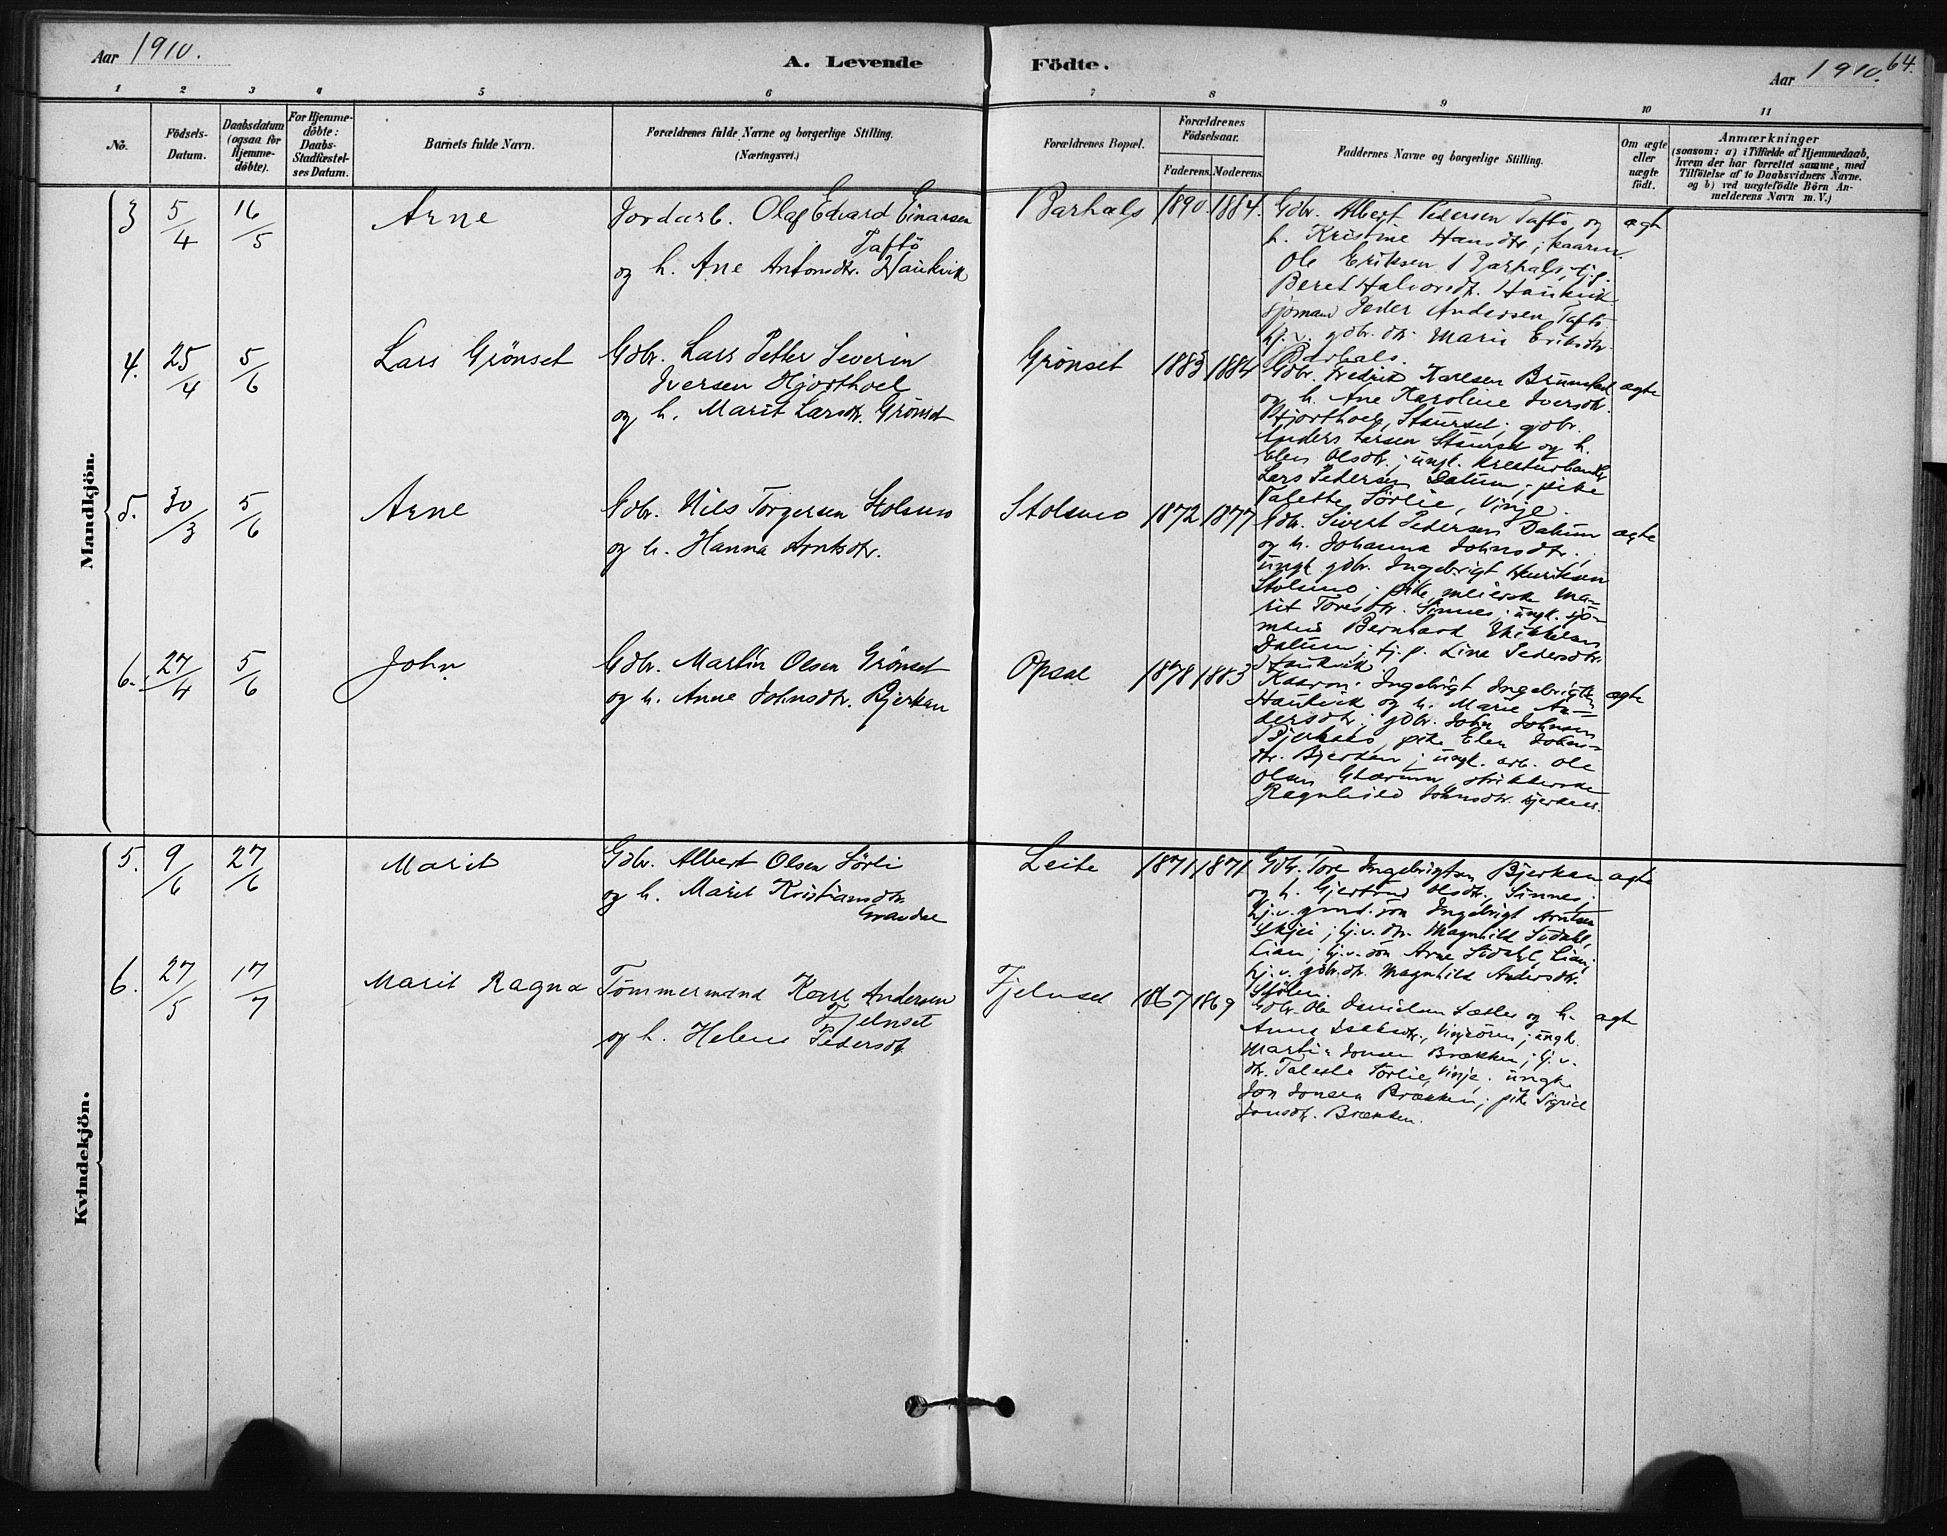 Aar 1910.
A. Levende Födte.
Aar 1910. 64.
1 2 3 4 5 6 7 8 9 10 11
No.
Födsels-
Datum.
Daabsdatum
(ogsaa for
Hjemme-
döbte).
For Hjemme-
döbte:
Daabs-
Stadfæstel-
ses Datum.
Barnets fulde Navn.
Forældrenes fulde Navne og borgerlige Stilling.
(Næringsvei.)
Forældrenes Bopæl.
Forældrenes
Födselsaar.
Faderens. Moderens.
Faddernes Navne og borgerlige Stilling.
Om ægte
eller
uægte
födt.
Anmærkninger
(saasom: a) i Tilfælde af Hjemmedaab,
hvem der har forrettet samme, med
Tilföielse af to Daabsvidners Navne.
og b) ved uægtefödte Börn An-
melderens Navn m. V.)
Mandkjön.
3 5/4 16/5 Arne
Jordarb. Olaf Edvard Einarsen
Taftö
og h. Ane Antonsdtr. Haukvik
Barhals 1890. 1884.
Gdbr. Albert Pedersen Taftö og
h. Kristine Hansdtr; kaarm.
Ole Eriksen Barhals, tj.p.
Beret Halvorsdtr. Haukvik
sjömand Peder Andersen Taftö
hj. v. gdbr. dtr. Marie Eriksdtr.
Barhals.
ægte
4. 25/4 5/6 Lars Grönset
Gdbr. Lars Petter Severin
Iversen Hjorthoel
og h. Marit Larsdtr. Grönset
Grönset 1883 1884
Gdbr. Fredrik Karlsen Brunstad
og h. Ane Karoline Iversdtr.
Hjorthoel, Staurset; gdbr.
Anders Larsen Staurset og h.
Elen Olsdtr.; ungk. kreaturhandler
Lars Pedersen Dalum; pike
Talette Sörlie, Vinje.
ægte
5. 30/3 5/6 Arne
Gdbr. Nils Torgersen Stolsmo
og h. Hanna Arntsdtr.
Stolsmo 1872 1877
Gdbr. Sivert Pedersen Dalum
og h. Johanna Johnsdtr.;
ungk. gdbr. Ingebrigt Henriksen
Stolsmo; pike, meierske Ma-
rit Toresdtr. Sinnes; ungk. sjö-
mand Bernhard Mikkelsen
Dalum; tj. p. Line Pedersdtr.
Haukvik.
ægte
6. 27/4 5/6 John
Gdbr. Martin Olsen Grönset
og h. Anne Johnsdtr. Bjerkan
Opsal 1878 1883
Kaarm. Ingebrigt Ingebrigtsen
Haukvik og h. Marie An-
dersdtr.; gdbr. John Johnsen
Bjerkan, pike Elen Johns-
dtr. Bjerkan; ungk. arb. Ole
Olsen Glærum, strikkerske
Ragnhild Johnsdtr. Bjerkan.
ægte
Kvindekjön.
5. 9/6 27/6 Marit
Gdbr. Albert Olsen Sörli
og h. Marit Kristiansdtr.
Leite 1871 1871
Gdbr. Tore Ingebrigtsen Bjerkan
og h. Gjertrud Olsdtr. Sinnes;
hj.v. gmd. sön Ingebrigt Arntsen
Skjei; hj.v. dtr. Magnhild Sødahl,
Lian; hj.v. sön Arne Sødahl, Lian;
hj.v. gdbr.dtr. Magnhild Andersdtr.
Stölen.
ægte
6. 27/5 17/7 Marit Ragna
Tömmermand Karl Andersen
Fjelnset
og h. Helene Pedersdtr.
Fjelnset 1867 1869
Gdbr. Ole Danielsen Sæther og h.
Anna Isaksdtr., Vinjeören; ungk.
Martin Jonsen Brækken; hj.v.
dtr. Talette Sörlie, Vinje; ungk.
Jon Jonsen Brækken; pike Sigrid
Jonsdtr. Brækken.
ægte